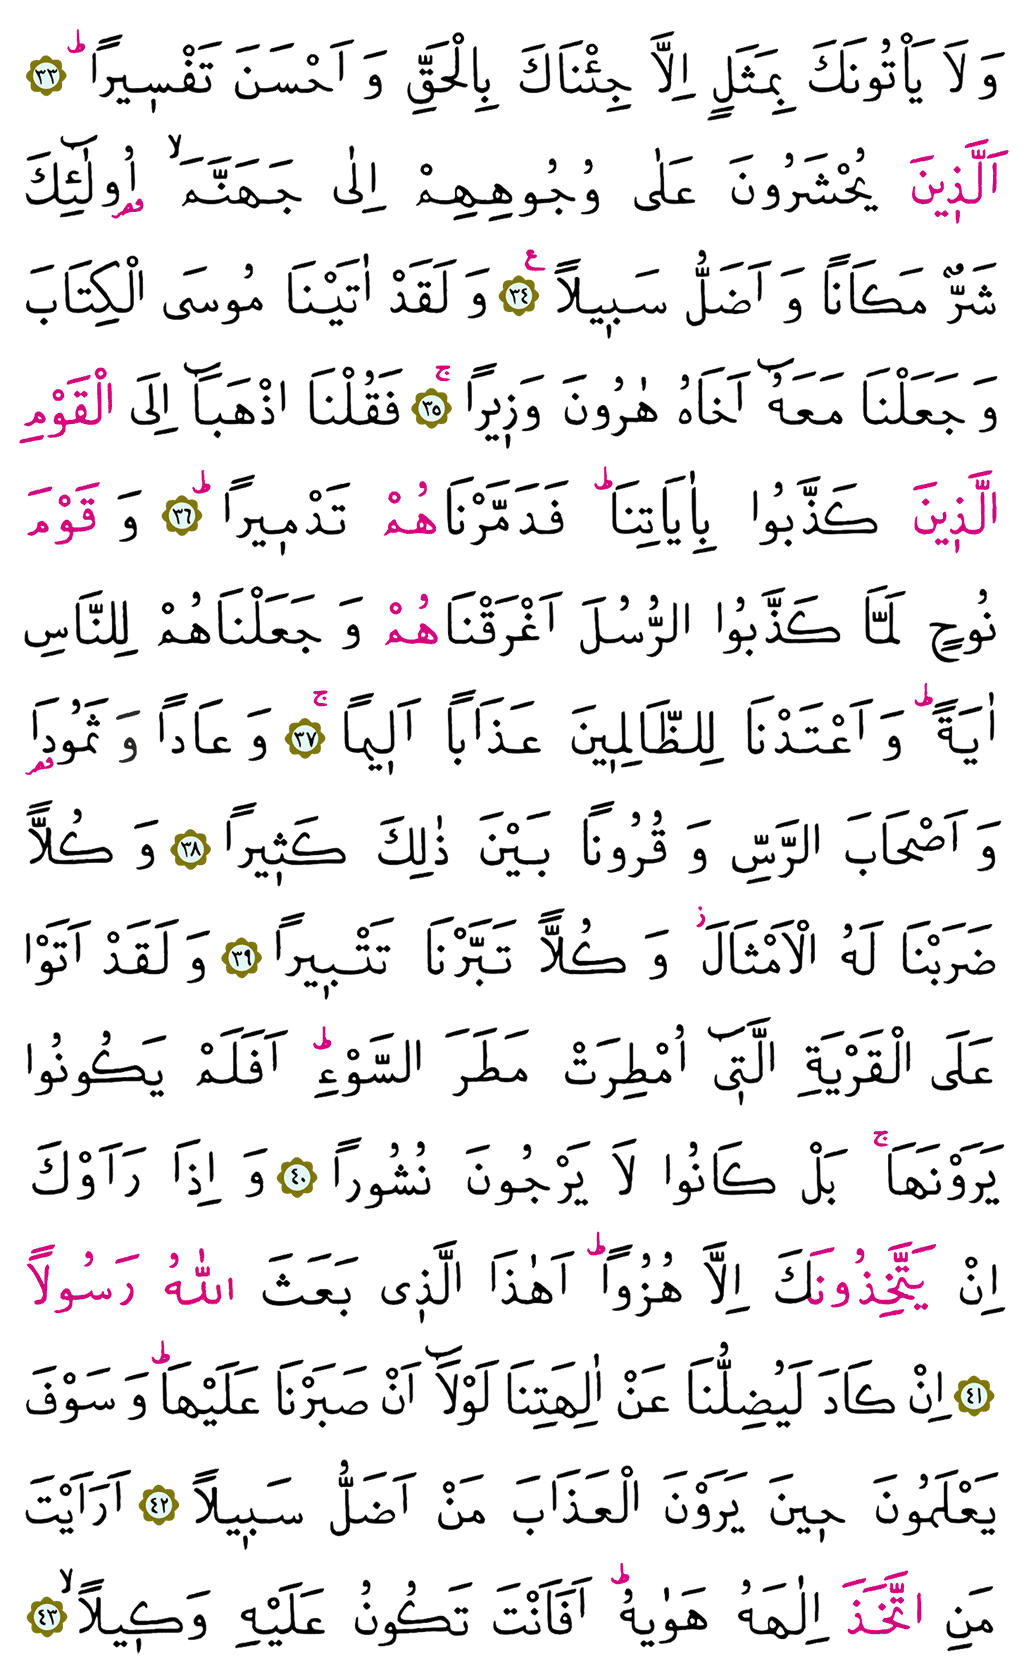 وَ لَا يَاْتُونَكَ بِمَثَلٍ اِلَّا جِئْنَاكَ بِالْحَقِّ وَ اَحْسَنَ تَفْسٖيراًۜ ٣٣
اَلَّذٖينَ يُحْشَرُونَ عَلٰى وُجُوهِهِمْ اِلٰى جَهَنَّمَۙ اُو۬لٰٓئِكَ
شَرٌّ مَكَاناً وَ اَضَلُّ سَبٖيلاًࣖ ٣٤ وَ لَقَدْ اٰتَيْنَا مُوسَى الْكِتَابَ
وَ جَعَلْنَا مَعَهُٓ اَخَاهُ هٰرُونَ وَزٖيراًۚ ٣٥ فَقُلْنَا اذْهَبَٓا اِلَى الْقَوْمِ
الَّذٖينَ كَذَّبُوا بِاٰيَاتِنَاۜ فَدَمَّرْنَاهُمْ تَدْمٖيراًۜ ٣٦ وَ قَوْمَ
نُوحٍ لَمَّا كَذَّبُوا الرُّسُلَ اَغْرَقْنَاهُمْ وَ جَعَلْنَاهُمْ لِلنَّاسِ
اٰيَةًۜ وَ اَعْتَدْنَا لِلظَّالِمٖينَ عَذَاباً اَلٖيماًۚ ٣٧ وَ عَاداً وَ ثَمُودَا۬
وَ اَصْحَابَ الرَّسِّ وَ قُرُوناً بَيْنَ ذٰلِكَ كَثٖيراً ٣٨ وَ كُلاًّ
ضَرَبْنَا لَهُ الْاَمْثَالَؗ وَ كُلاًّ تَبَّرْنَا تَتْبٖيراً ٣٩ وَ لَقَدْ اَتَوْا
عَلَى الْقَرْيَةِ الَّتٖٓى اُمْطِرَتْ مَطَرَ السَّوْءِۜ اَفَلَمْ يَكُونُوا
يَرَوْنَهَاۚ بَلْ كَانُوا لَا يَرْجُونَ نُشُوراً ٤٠ وَ اِذَا رَاَوْكَ
اِنْ يَتَّخِذُونَكَ اِلَّا هُزُواًۜ اَهٰذَا الَّذٖى بَعَثَ اللّٰهُ رَسُولاً
٤١ اِنْ كَادَ لَيُضِلُّنَا عَنْ اٰلِهَتِنَا لَوْلَٓا اَنْ صَبَرْنَا عَلَيْهَاۜ وَ سَوْفَ
يَعْلَمُونَ حٖينَ يَرَوْنَ الْعَذَابَ مَنْ اَضَلُّ سَبٖيلاً ٤٢ اَرَاَيْتَ
مَنِ اتَّخَذَ اِلٰهَهُ هَوٰيهُۜ اَفَاَنْتَ تَكُونُ عَلَيْهِ وَكٖيلاًۙ ٤٣